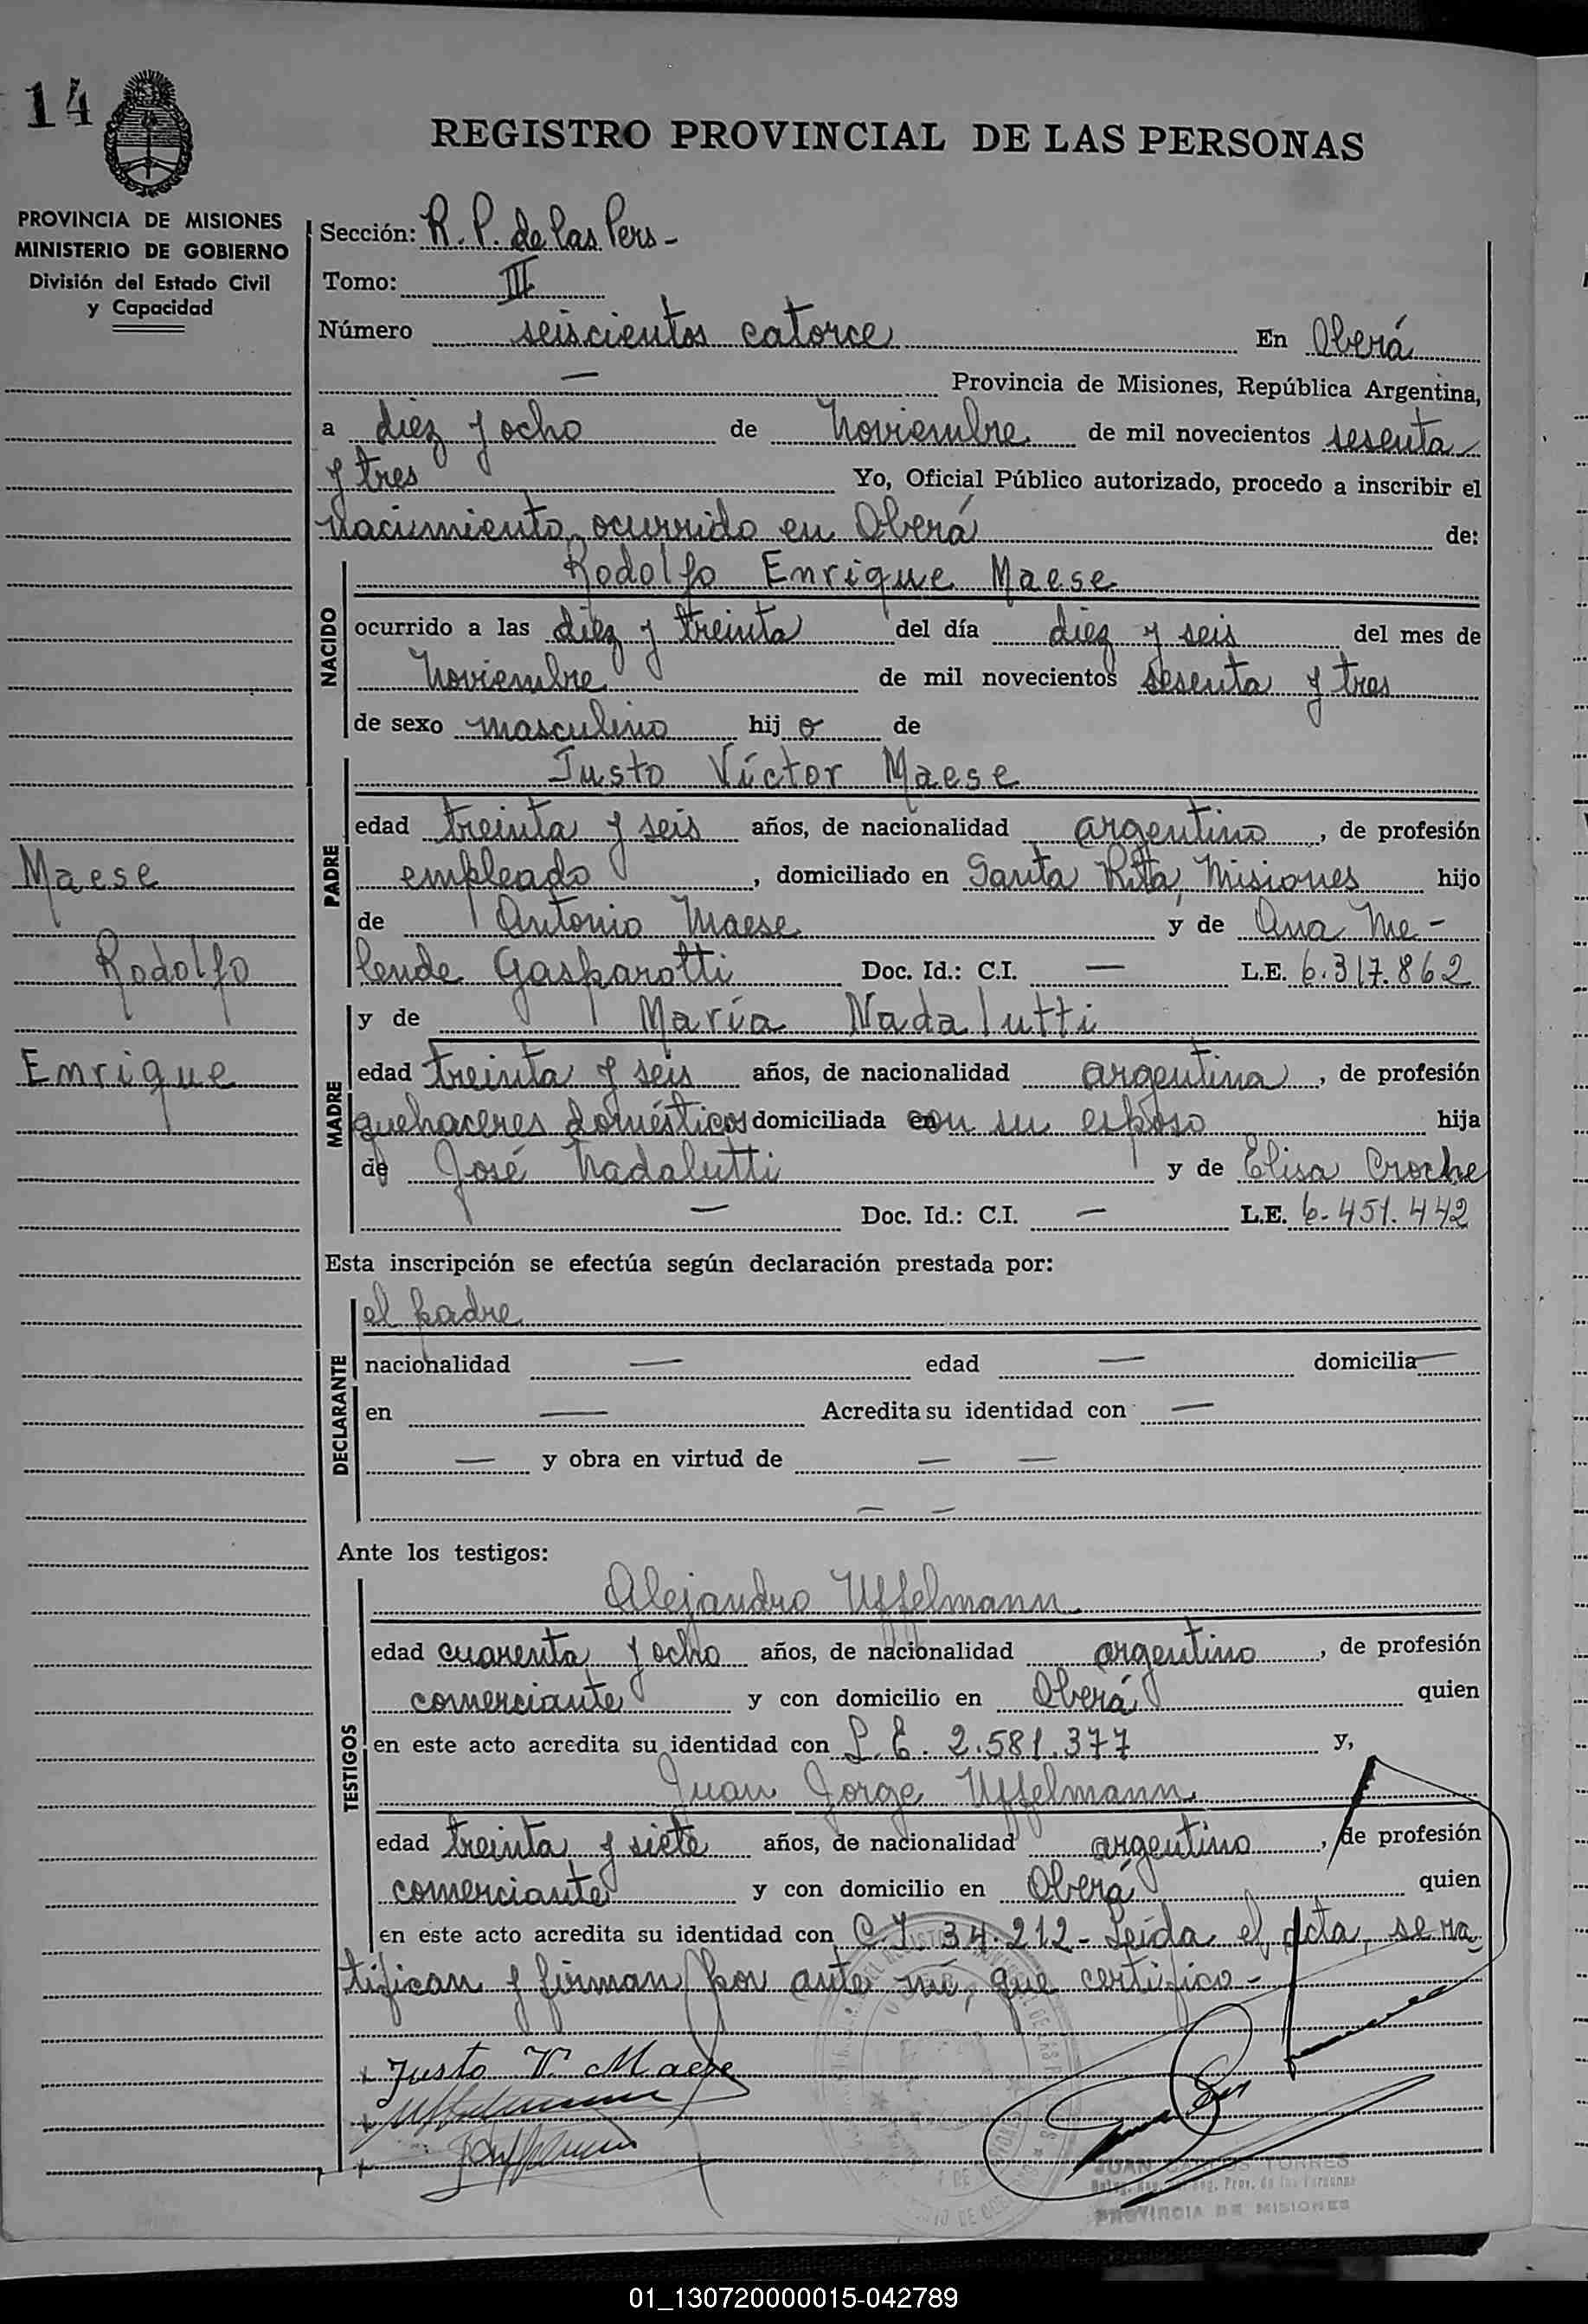 14
REGISTRO PROVINCIAL DE LAS PERSONAS
PROVINCIA DE MISIONES
MINISTERIO DE GOBIERNO
División del Estado Civil
y Capacidad
Sección: R. P. de las Pers -
Tomo: III
Número seiscientos catorce En Oberá
— Provincia de Misiones, República Argentina,
a diez y ocho de Noviembre de mil novecientos sesenta
y tres Yo, Oficial Público autorizado, procedo a inscribir el
nacimiento ocurrido en Oberá de:
NACIDO
Rodolfo Enrique Maese
ocurrido a las diez y treinta del día diez y seis del mes de
Noviembre de mil novecientos sesenta y tres
de sexo masculino hij o de
PADRE
Justo Víctor Maese
edad treinta y seis años, de nacionalidad argentino, de profesión
empleado, domiciliado en Santa Rita, Misiones hijo
de Antonio Maese y de Ana Me-
lende Gasparotti Doc. Id.: C.I. — L.E. 6.317.862
Maese
Rodolfo
Enrique
MADRE
y de María Nadalutti
edad treinta y seis años, de nacionalidad argentina, de profesión
quehaceres domésticos domiciliada en con su esposo hija
de José Nadalutti y de Elisa Croche
— Doc. Id.: C.I. — L.E. 6.451.442
Esta inscripción se efectúa según declaración prestada por:
DECLARANTE
el padre
nacionalidad — edad — domicilia —
en — Acredita su identidad con —
— y obra en virtud de — —
— —
Ante los testigos:
TESTIGOS
Alejandro Uffelmann
edad cuarenta y ocho años, de nacionalidad argentino, de profesión
comerciante y con domicilio en Oberá quien
en este acto acredita su identidad con L. E. 2.581.377 y,
Juan Jorge Uffelmann
edad treinta y siete años, de nacionalidad argentino, de profesión
comerciante y con domicilio en Oberá quien
en este acto acredita su identidad con C.I. 34.212 - Leída el acta, se ra-
tifican y firman por ante mí, que certifico -
+ Justo V. Maese
+ Uffelmann
+
JUAN CARLOS TORRES
PROVINCIA DE MISIONES
01_130720000015-042789